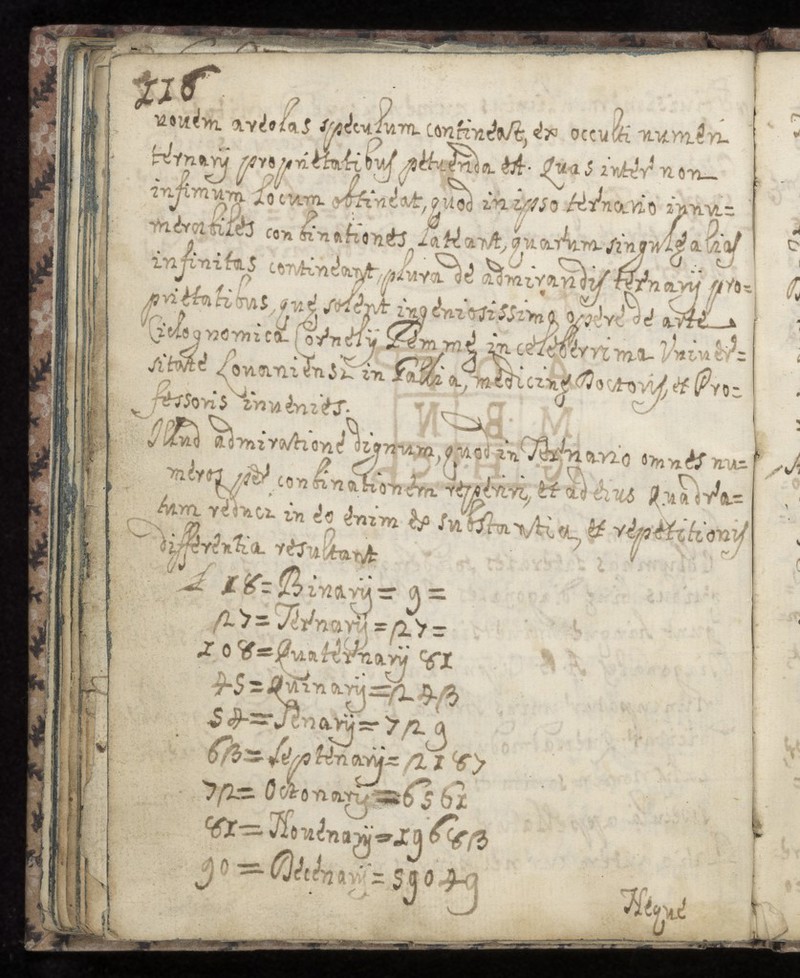 116
novem areolas speculum contineat, ex occulti numeri
ternarij proprietatibus petenda est. Quas inter non
infimum locum obtineat, quod in ipso ternario innu=
merabiles conbinationes lateant, quarum singulę alias
infinitas contineant, plura de admirandis ternarij pro=
prietatibus, quę solent ingeniosissimo opere de arte
Ciclognomica Cornelij Gemmę in celeberrima Univer=
sitate Lovaniensi in Gallia, medicinę Doctoris, et Pro=
fessoris invenies.
Illud admiratione dignum, quod in Ternario omnes nu=
meros per conbinationem reperiri, et ad eius Quadra=
tum reduci in eo enim ex substantia, et repetitionis
differentia resultant
18= Binarij= 9=
27= Ternarij=27=
108=Quaternarij 81
45=Quinarij=243
54=Senarij=729
63=Septenarij=2187
72= Octonarij=6561
81=Novenarij=19683
90=Decenarij=59049
Neque